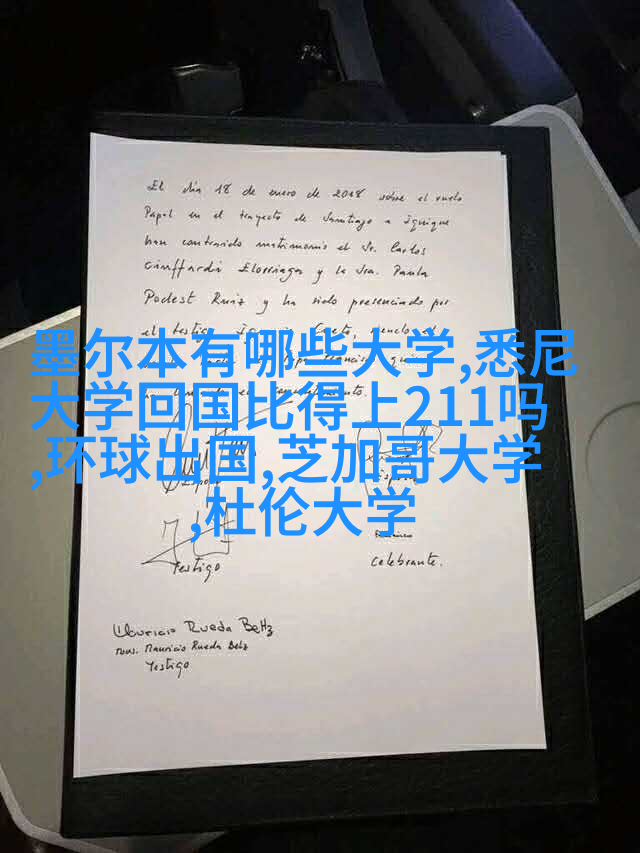 El día 18 de enero de 2018 sobre el vuelo
Papal en el trayecto de Santiago a Iquique
han contraido matrimonio el Sr. Carlos
Ciuffardi Elorriaga y la Sra. Paula
Podest Ruiz y ha sido presenciado por
el testigo
墨尔本有哪些大学,悉尼
大学回国比得上211吗
,环球出国,芝加哥大学
,杜伦大学
Testigo
Celebrante.
Mauricio Rueda Beltz
Mons. Mauricio Rueda Beltz
Testigo